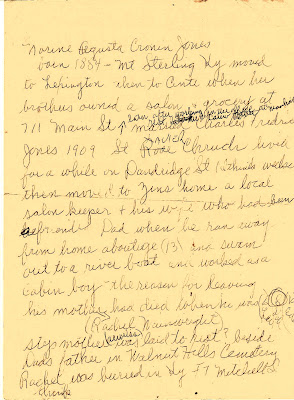 Norine Agusta Cronin Jones
born 1884 - Mt Sterling Ky moved
to Lexington then to Cinti when her
brothers owned a salon & grocery at
711 Main St married Charles Fredric
Jones 1909 St Rose Chruch lived
for a while on Dandridge St
then moved to Zins home a local
salon keeper & his wife who had been
Dad when he ran away
from home about age (13) and swam
out to a river boat and worked as a
cabin boy - the reason for leaving
his mother had died when he was
(Rachel Wainwright)
step mother was laid to rest? beside
Dads father in Walnut Hills Cemetery
Rachel was buried in Ky Ft Mitchell